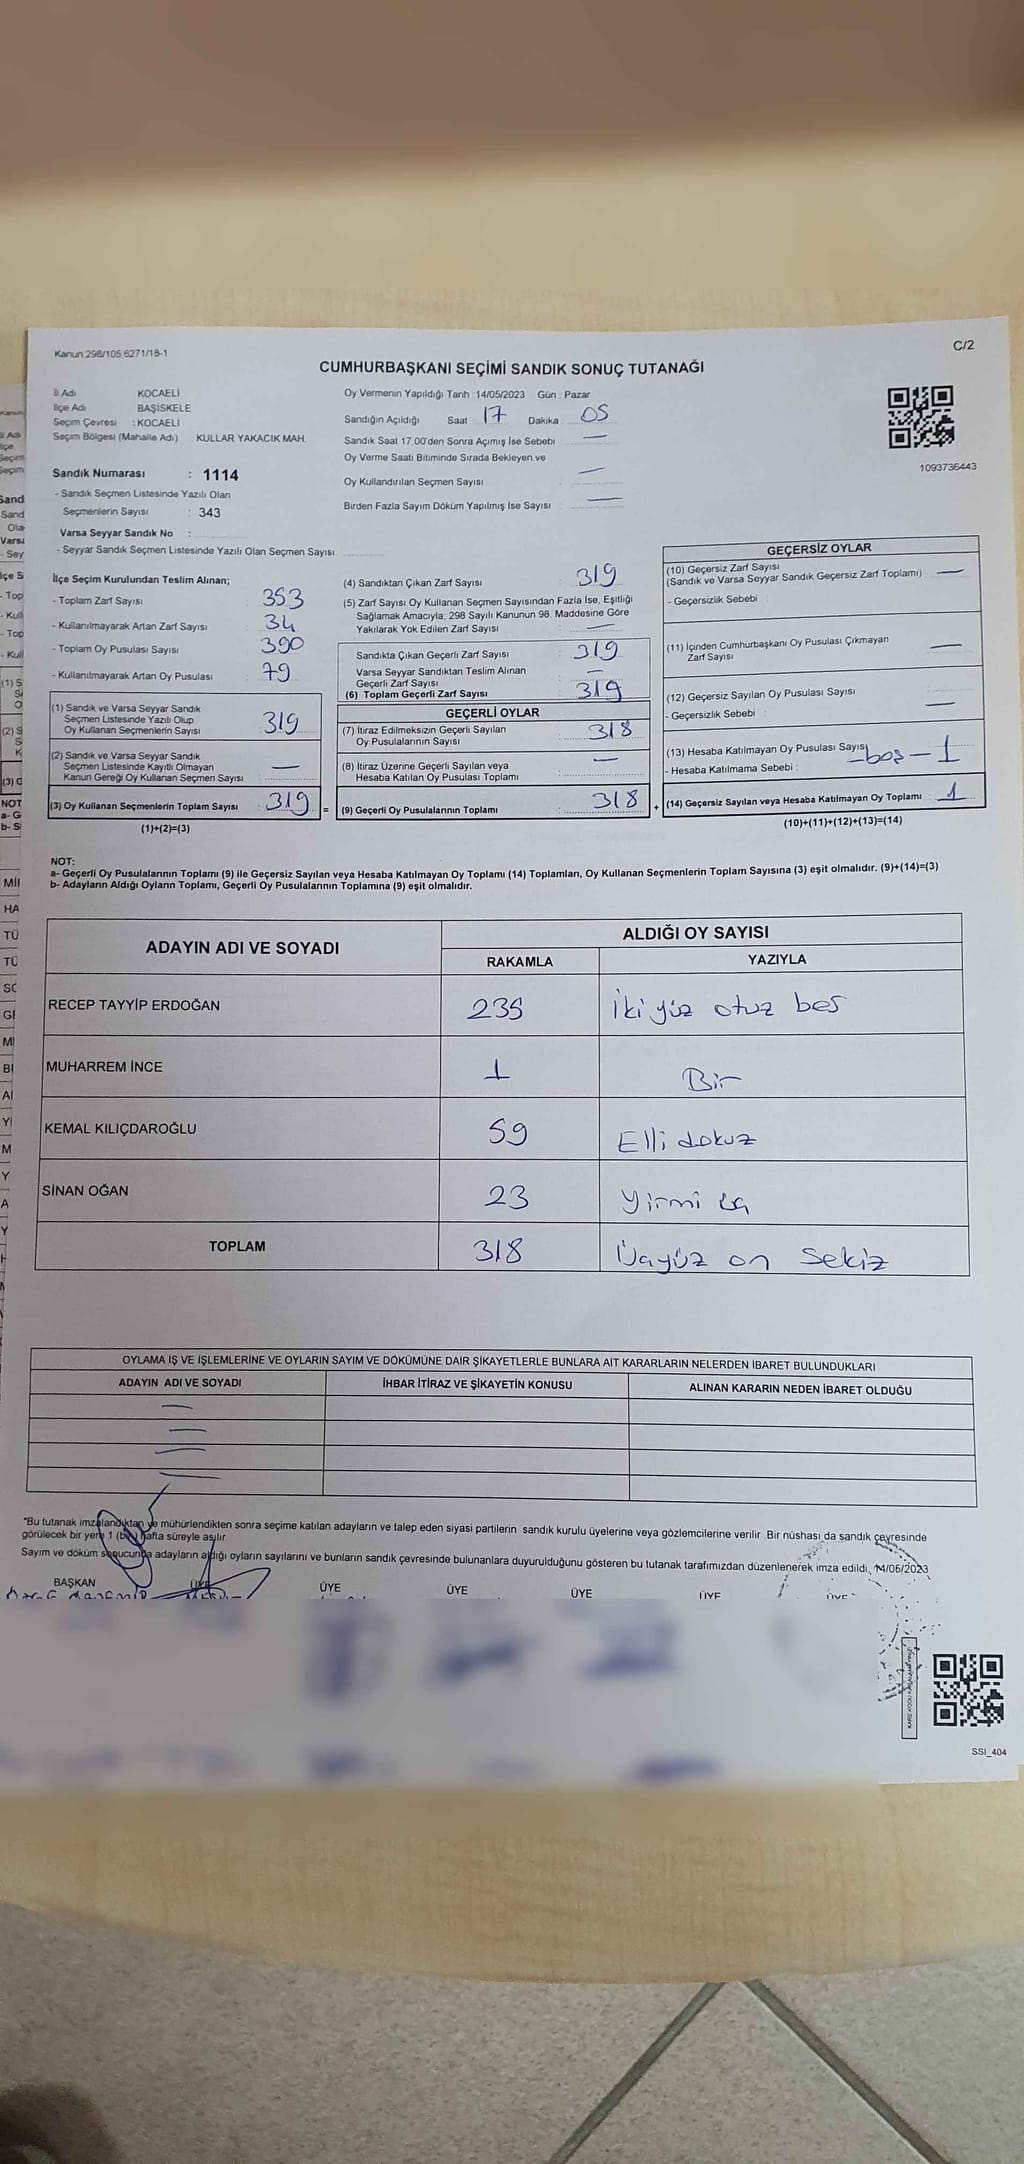 Kanun:298/105;6271/18-1
C/2
CUMHURBAŞKANI SEÇİMİ SANDIK SONUÇ TUTANAĞI
İl Adı KOCAELİ
İlçe Adı BAŞİSKELE
Seçim Çevresi : KOCAELİ
Seçim Bölgesi (Mahalle Adı) KULLAR YAKACIK MAH.
Sandık Numarası : 1114
- Sandık Seçmen Listesinde Yazılı Olan
Seçmenlerin Sayısı : 343
Varsa Seyyar Sandık No :
- Seyyar Sandık Seçmen Listesinde Yazılı Olan Seçmen Sayısı
Oy Vermenin Yapıldığı Tarih : 14/05/2023 Gün : Pazar
Sandığın Açıldığı Saat 17 Dakika 05
Sandık Saat 17.00'den Sonra Açımış İse Sebebi —
Oy Verme Saati Bitiminde Sırada Bekleyen ve
Oy Kullandırılan Seçmen Sayısı —
Birden Fazla Sayım Döküm Yapılmış İse Sayısı —
1093736443
İlçe Seçim Kurulundan Teslim Alınan;
- Toplam Zarf Sayısı 353
- Kullanılmayarak Artan Zarf Sayısı 34
- Toplam Oy Pusulası Sayısı 390
- Kullanılmayarak Artan Oy Pusulası 79
(1) Sandık ve Varsa Seyyar Sandık
Seçmen Listesinde Yazılı Olup
Oy Kullanan Seçmenlerin Sayısı 319
(2) Sandık ve Varsa Seyyar Sandık
Seçmen Listesinde Kayıtlı Olmayan
Kanun Gereği Oy Kullanan Seçmen Sayısı —
(3) Oy Kullanan Seçmenlerin Toplam Sayısı : 319 =
(1)+(2)=(3)
(4) Sandıktan Çıkan Zarf Sayısı 319
(5) Zarf Sayısı Oy Kullanan Seçmen Sayısından Fazla İse, Eşitliği
Sağlamak Amacıyla; 298 Sayılı Kanunun 98. Maddesine Göre
Yakılarak Yok Edilen Zarf Sayısı —
Sandıkta Çıkan Geçerli Zarf Sayısı 319
Varsa Seyyar Sandıktan Teslim Alınan
Geçerli Zarf Sayısı —
(6) Toplam Geçerli Zarf Sayısı 319
GEÇERLİ OYLAR
(7) İtiraz Edilmeksizin Geçerli Sayılan
Oy Pusulalarının Sayısı 318
(8) İtiraz Üzerine Geçerli Sayılan veya
Hesaba Katılan Oy Pusulası Toplamı —
(9) Geçerli Oy Pusulalarının Toplamı 318 +
GEÇERSİZ OYLAR
(10) Geçersiz Zarf Sayısı
(Sandık ve Varsa Seyyar Sandık Geçersiz Zarf Toplamı) —
- Geçersizlik Sebebi
(11) İçinden Cumhurbaşkanı Oy Pusulası Çıkmayan
Zarf Sayısı —
(12) Geçersiz Sayılan Oy Pusulası Sayısı —
- Geçersizlik Sebebi :
(13) Hesaba Katılmayan Oy Pusulası Sayısı boş — 1
- Hesaba Katılmama Sebebi :
(14) Geçersiz Sayılan veya Hesaba Katılmayan Oy Toplamı : 1
(10)+(11)+(12)+(13)=(14)
NOT:
a- Geçerli Oy Pusulalarının Toplamı (9) ile Geçersiz Sayılan veya Hesaba Katılmayan Oy Toplamı (14) Toplamları, Oy Kullanan Seçmenlerin Toplam Sayısına (3) eşit olmalıdır. (9)+(14)=(3)
b- Adayların Aldığı Oyların Toplamı, Geçerli Oy Pusulalarının Toplamına (9) eşit olmalıdır.
ADAYIN ADI VE SOYADI ALDIĞI OY SAYISI
RAKAMLA YAZIYLA
RECEP TAYYİP ERDOĞAN 235 İki yüz otuz beş
MUHARREM İNCE 1 Bir
KEMAL KILIÇDAROĞLU 59 Elli dokuz
SİNAN OĞAN 23 Yirmi üç
TOPLAM 318 Üçyüz on sekiz
OYLAMA İŞ VE İŞLEMLERİNE VE OYLARIN SAYIM VE DÖKÜMÜNE DAİR ŞİKAYETLERLE BUNLARA AİT KARARLARIN NELERDEN İBARET BULUNDUKLARI
ADAYIN ADI VE SOYADI İHBAR İTİRAZ VE ŞİKAYETİN KONUSU ALINAN KARARIN NEDEN İBARET OLDUĞU
*Bu tutanak imzalandıktan ve mühürlendikten sonra seçime katılan adayların ve talep eden siyasi partilerin sandık kurulu üyelerine veya gözlemcilerine verilir. Bir nüshası da sandık çevresinde
görülecek bir yere 1 (bir) hafta süreyle asılır.
Sayım ve döküm sonucunda adayların aldığı oyların sayılarını ve bunların sandık çevresinde bulunanlara duyurulduğunu gösteren bu tutanak tarafımızdan düzenlenerek imza edildi. 14/05/2023
BAŞKAN ÜYE ÜYE ÜYE ÜYE ÜYE ÜYE
SSI_404